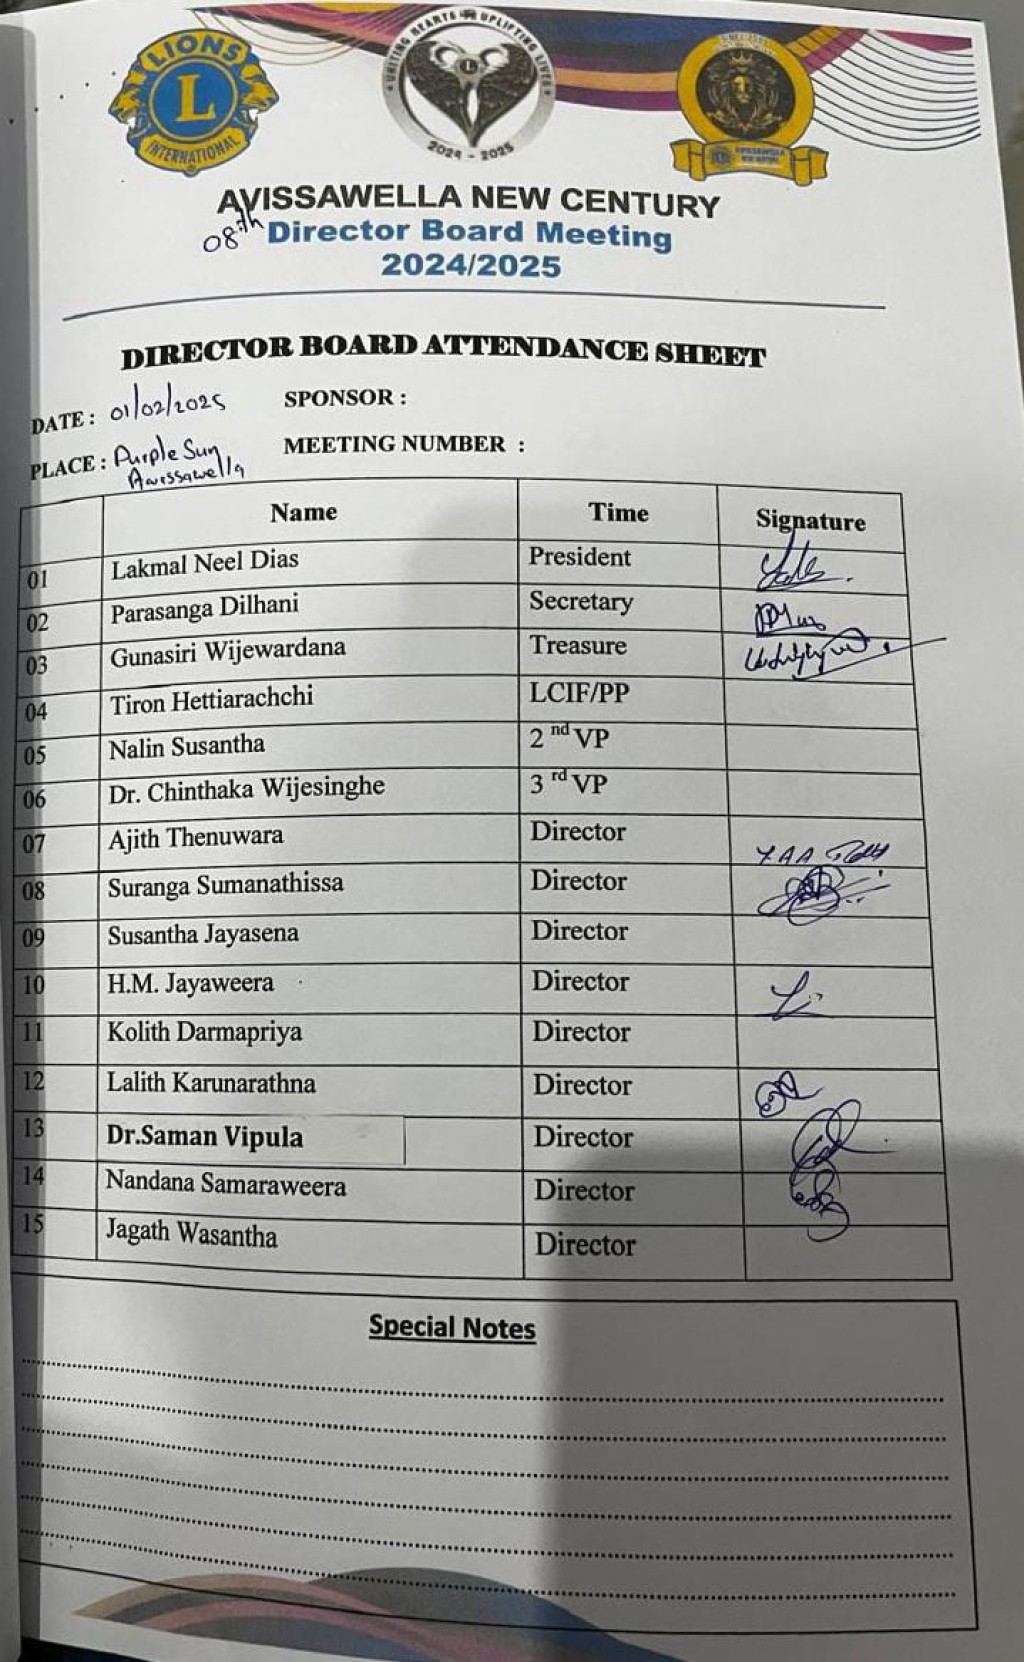 LIONS
L
INTERNATIONAL
UNITING HEARTS UPLIFTING LIVES
2024 - 2025
AVISSAWELLA NEW CENTURY
08th Director Board Meeting
2024/2025
DIRECTOR BOARD ATTENDANCE SHEET
DATE : 01/02/2025 SPONSOR :
PLACE : Purple Sun MEETING NUMBER :
Avissawella
Name Time Signature
01 Lakmal Neel Dias President
02 Parasanga Dilhani Secretary
03 Gunasiri Wijewardana Treasure
04 Tiron Hettiarachchi LCIF/PP
05 Nalin Susantha 2 nd VP
06 Dr. Chinthaka Wijesinghe 3 rd VP
07 Ajith Thenuwara Director
08 Suranga Sumanathissa Director
09 Susantha Jayasena Director
10 H.M. Jayaweera Director
11 Kolith Darmapriya Director
12 Lalith Karunarathna Director
13 Dr.Saman Vipula Director
14 Nandana Samaraweera Director
15 Jagath Wasantha Director
Special Notes